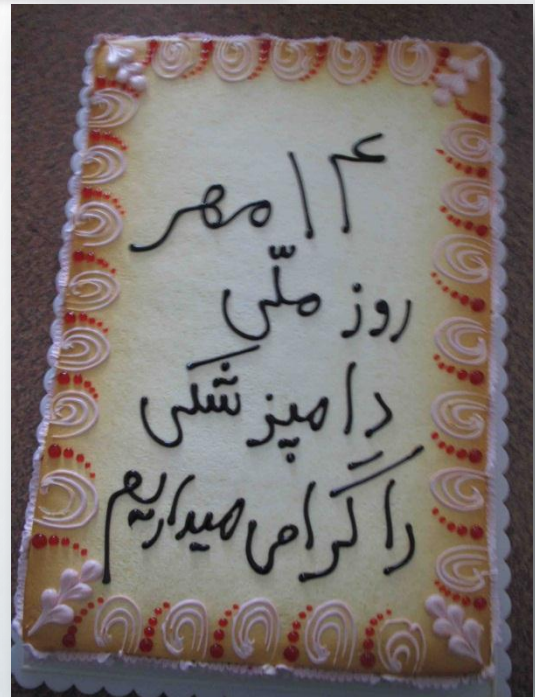 ۱۴ مهر
روز ملّی
دامپزشکی
را گرامی میداریم